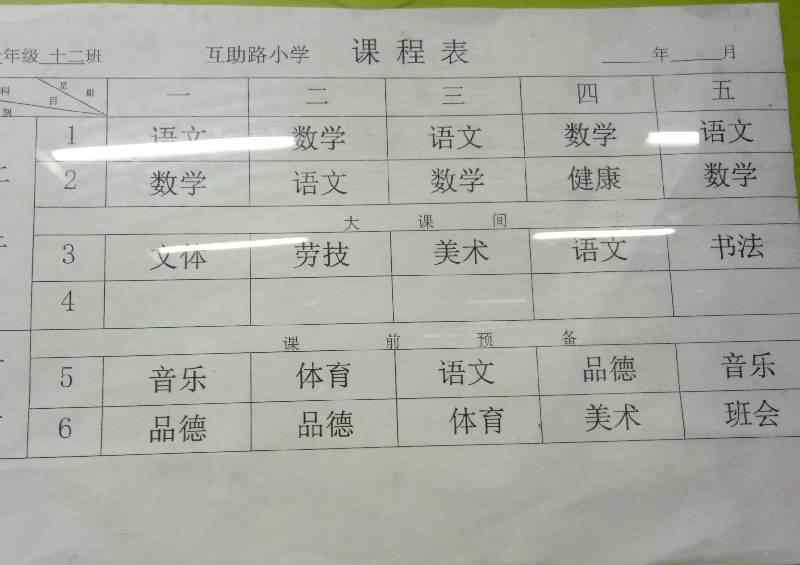 年级 十二班 互助路小学 课程表 年 月
科 目 星 期 一 二 三 四 五
别
1 语文 数学 语文 数学 语文
2 数学 语文 数学 健康 数学
大课间
3 文体 劳技 美术 语文 书法
4
课前预备
5 音乐 体育 语文 品德 音乐
6 品德 品德 体育 美术 班会